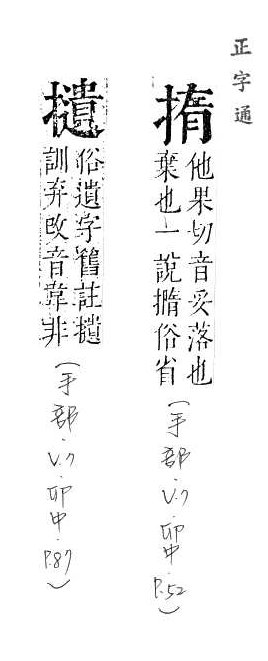 正字通
揹
他果切音妥落也
棄也一說擩俗省
(手部.V.7.卯中.P.52)
擿
俗遺字舊註擿
訓弃改音韋非
(手部.V.7.卯中.P.87)